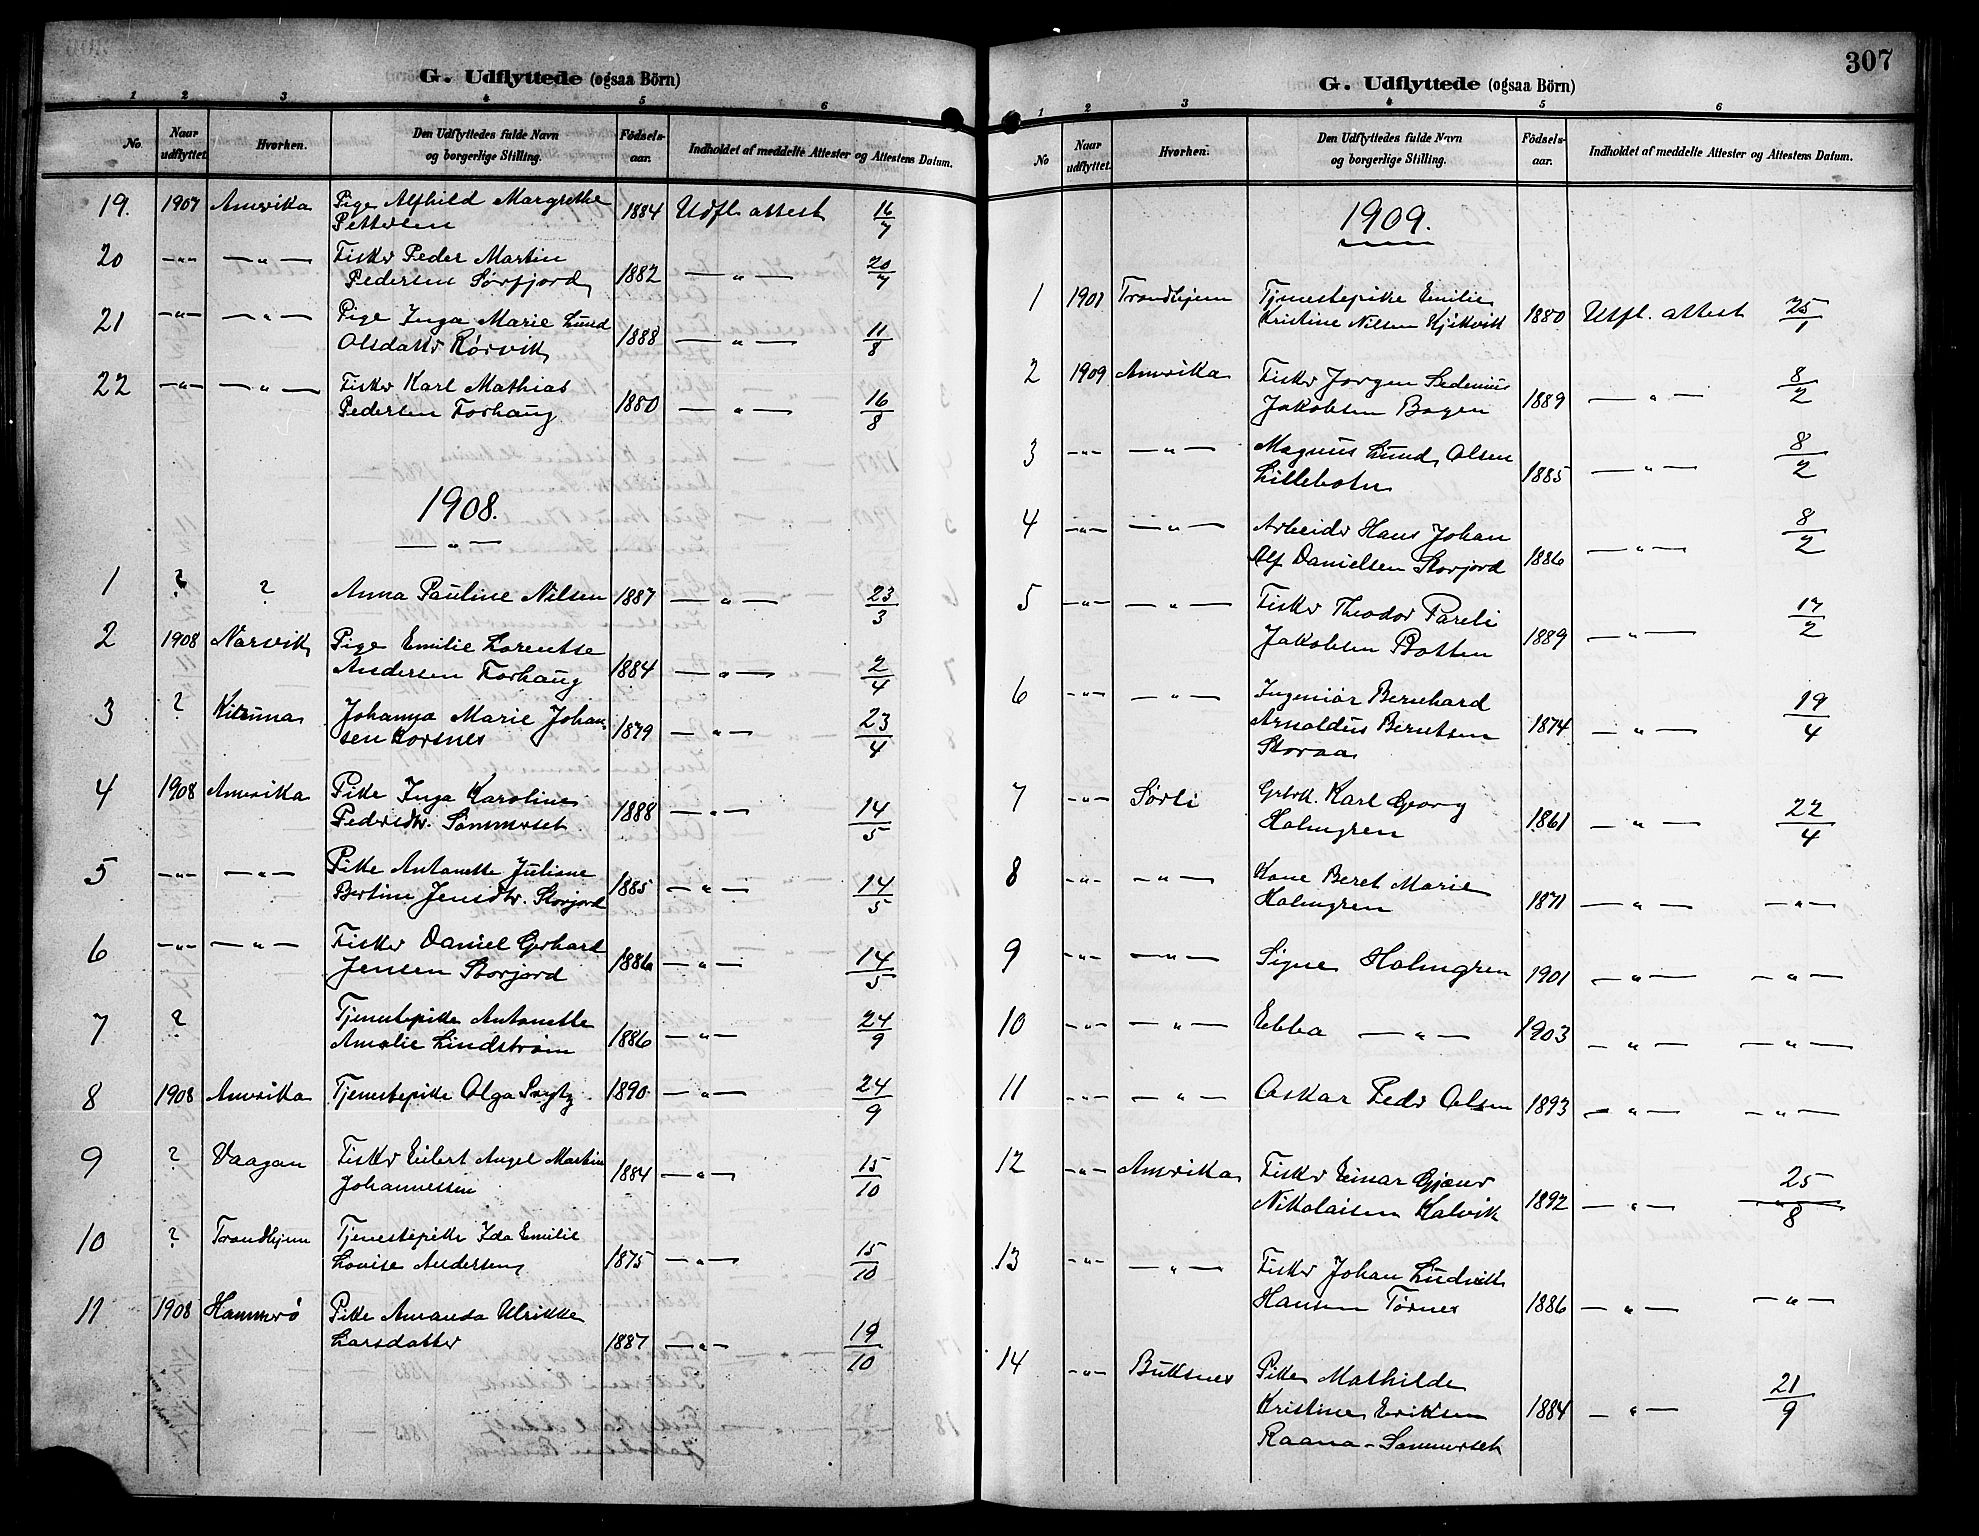 G. Udflyttede (ogsaa Börn)
1 2 3 4 5 6
No. Naar udflyttet. Hvorhen. Den Udflyttedes fulde Navn og borgerlige Stilling. Födsels-aar. Indholdet af meddelte Attester og Attestens Datum.
19. 1907 Amerika Pige Alfhild Margrethe 1884 Udfl. attest 16/7
Pettersen
20 -"- -"- Fisker Peder Martin
Pedersen Sørfjord 1882 -"- 20/7
21 -"- -"- Pige Inga Marie Lund
Olsdattr Rørvik 1888 -"- 11/8
22 -"- -"- Fisker Karl Mathias
Pedersen Forhaug 1880 -"- 16/8
1908.
-"-
1 ? ? Anna Pauline Nilsen 1887 -"- 23/3
2 1908 Narvik Pige Emilie Lorentse
Andersen Forhaug 1884 -"- 2/4
3 ? Kiruna Johanna Marie Johan-
sen Korsnes 1879 -"- 23/4
4 1908 Amerika Pike Inga Karoline
Pedersdtr. Sommerset 1888 -"- 14/5
5 -"- -"- Pike Antonette Juliane
Bertine Jensdtr. Storjord 1885 -"- 14/5
6 -"- -"- Fisker Daniel Gerhard
Jensen Storjord 1886 -"- 14/5
7 ? Tjenestepike Antonette
Amalie Lindstrøm 1886 -"- 24/9
8 1908 Amerika Tjenestepike Olga 1890 -"- 24/9
9 ? Vaagan Fisker Eilert Angel Martin
Johannessen 1884 -"- 15/10
10 ? Trondhjem Tjenestepike Ida Emilie
Lovise Andersen 1875 -"- 15/10
11 1908 Hammerö Pike Amanda Ulrikke
Larsdatter 1887 -"- 19/10
307
G. Udflyttede (ogsaa Börn)
1 2 3 4 5 6
No Naar udflyttet. Hvorhen. Den Udflyttedes fulde Navn og borgerlige Stilling. Födsels-aar. Indholdet af meddelte Attester og Attestens Datum.
1909.
1 1901 Trondhjem Tjenestepike Emilie
Kristine Nilsen Kjikvik 1880 Utfl. attest 25/1
2 1909 Amerika Fisker Jørgen Sedenius
Jakobsen Bogen 1889 -"- 8/2
3 -"- -"- Magnus Lund Olsen
Lillebotn 1885 -"- 8/2
4 -"- -"- Arbeider Hans Johan
Alf Danielsen Storjord 1886 -"- 8/2
5 -"- -"- Fisker Theodor Pareli
Jakobsen Botten 1889 -"- 17/2
6 -"- -"- Ingeniør Bernhard
Arnoldus Berntsen 1874 -"- 19/4
Storaa
7 -"- Sørli Grbrk. Karl Georg
Holmgren 1861 -"- 22/4
8 -"- -"- Kone Beret Marie
Holmgren 1871 -"- -"-
9 -"- -"- Signe Holmgren 1901 -"- -"-
10 -"- -"- Ebba -"- 1903 -"- -"-
11 -"- -"- Oskar Peder Olsen 1893 -"- -"-
12 -"- Amerika Fisker Einar Gjæver
Nikolaisen Kalvik 1892 -"- 25/8
13 -"- -"- Fisker Johan Ludvik
Hansen Tørnes 1886 -"- -"-
14 -"- Buksnes Pike Mathilde
Kristine Eriksen 1884 -"- 21/9
Raana-Sommerset